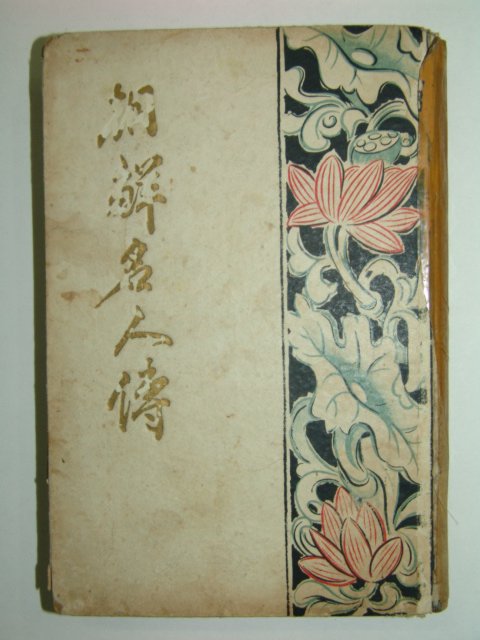 朝鮮名人傳